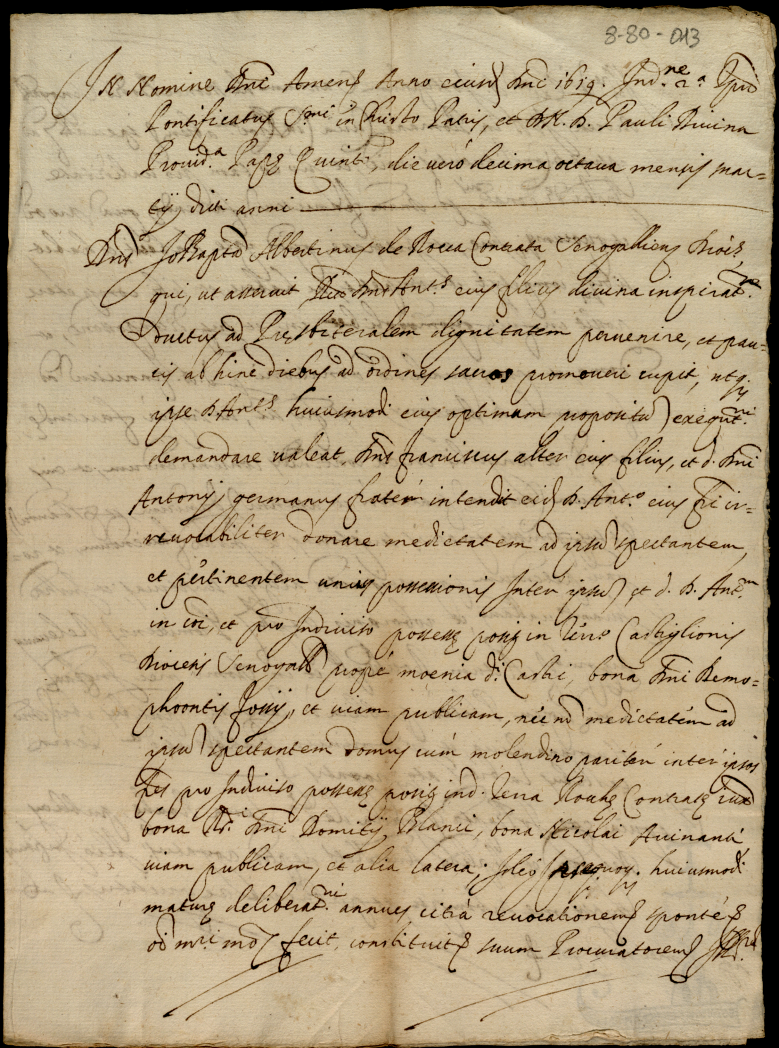 8-80-013
In Nomine Dni Amen Anno eiusd Dni 1619. Ind.ne 2.a
Pontificatus S.mi in Christo Patris, et D.N. D. Pauli Divina
Provid.a Papę Quinti, die vero decima octava mensis mar=
tij dicti anni
Dns Jo Bapta Albertinus de Rocca Contrata Senogallien Diocis,
qui, ut asseruit eius filius divina inspirat.ne
Ductus ad Presbiteralem dignitatem pervenire, et pau=
cis ab hinc diebus ad ordines sacros promoveri cupit, utq.
ipse D. Ant.s huiusmodi eius optimum propositu
demandare valeat, Dns Franciscus alter eius filius, et d. Dni
Antonij germanus frater intendit eid D. Ant.o eius fri ir=
revocabiliter donare medietatem ad ipsu spectantem,
et pertinentem unius possessionis inter ipsu et d. D. Ant.m
in coi, et pro indiviso possessę positę in Castiglionis
Diocesis Senogall prope moenia d. Castri, bona Dni Demo=
phoontis et viam publicam, nec no medietatem ad
ipsu spectantem domus cum molendino pariter inter ipsos
fres pro indiviso possessę positę in d. Terra Rochę Contratę iux
bona Dni Domitij Blanci, bona Nicolai Avinanti
viam publicam, et alia latera; huiusmodi
maturę deliberat.ni annues citra revocationem sponte
oi m.ri mo fecit, constituit suum Procuratorem